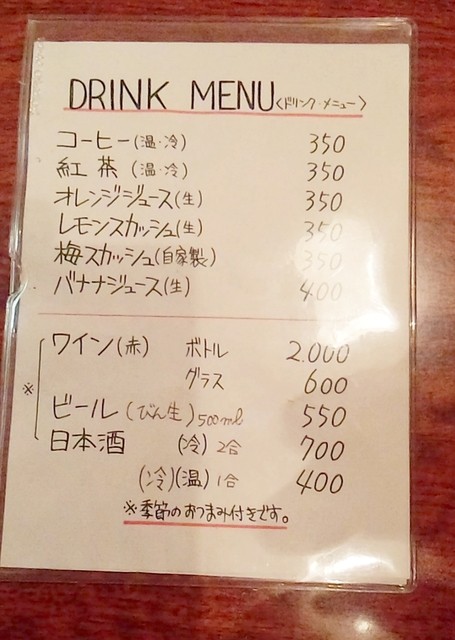 DRINK MENU〈ドリンク・メニュー〉
コーヒー(温・冷) 350
紅茶(温・冷) 350
オレンジジュース(生) 350
レモンスカッシュ(生) 350
梅スカッシュ(自家製) 350
バナナジュース(生) 400
ワイン(赤) ボトル 2.000
グラス 600
※
ビール(びん生)500ml 550
日本酒 (冷)2合 700
(冷)(温)1合 400
※季節のおつまみ付きです。